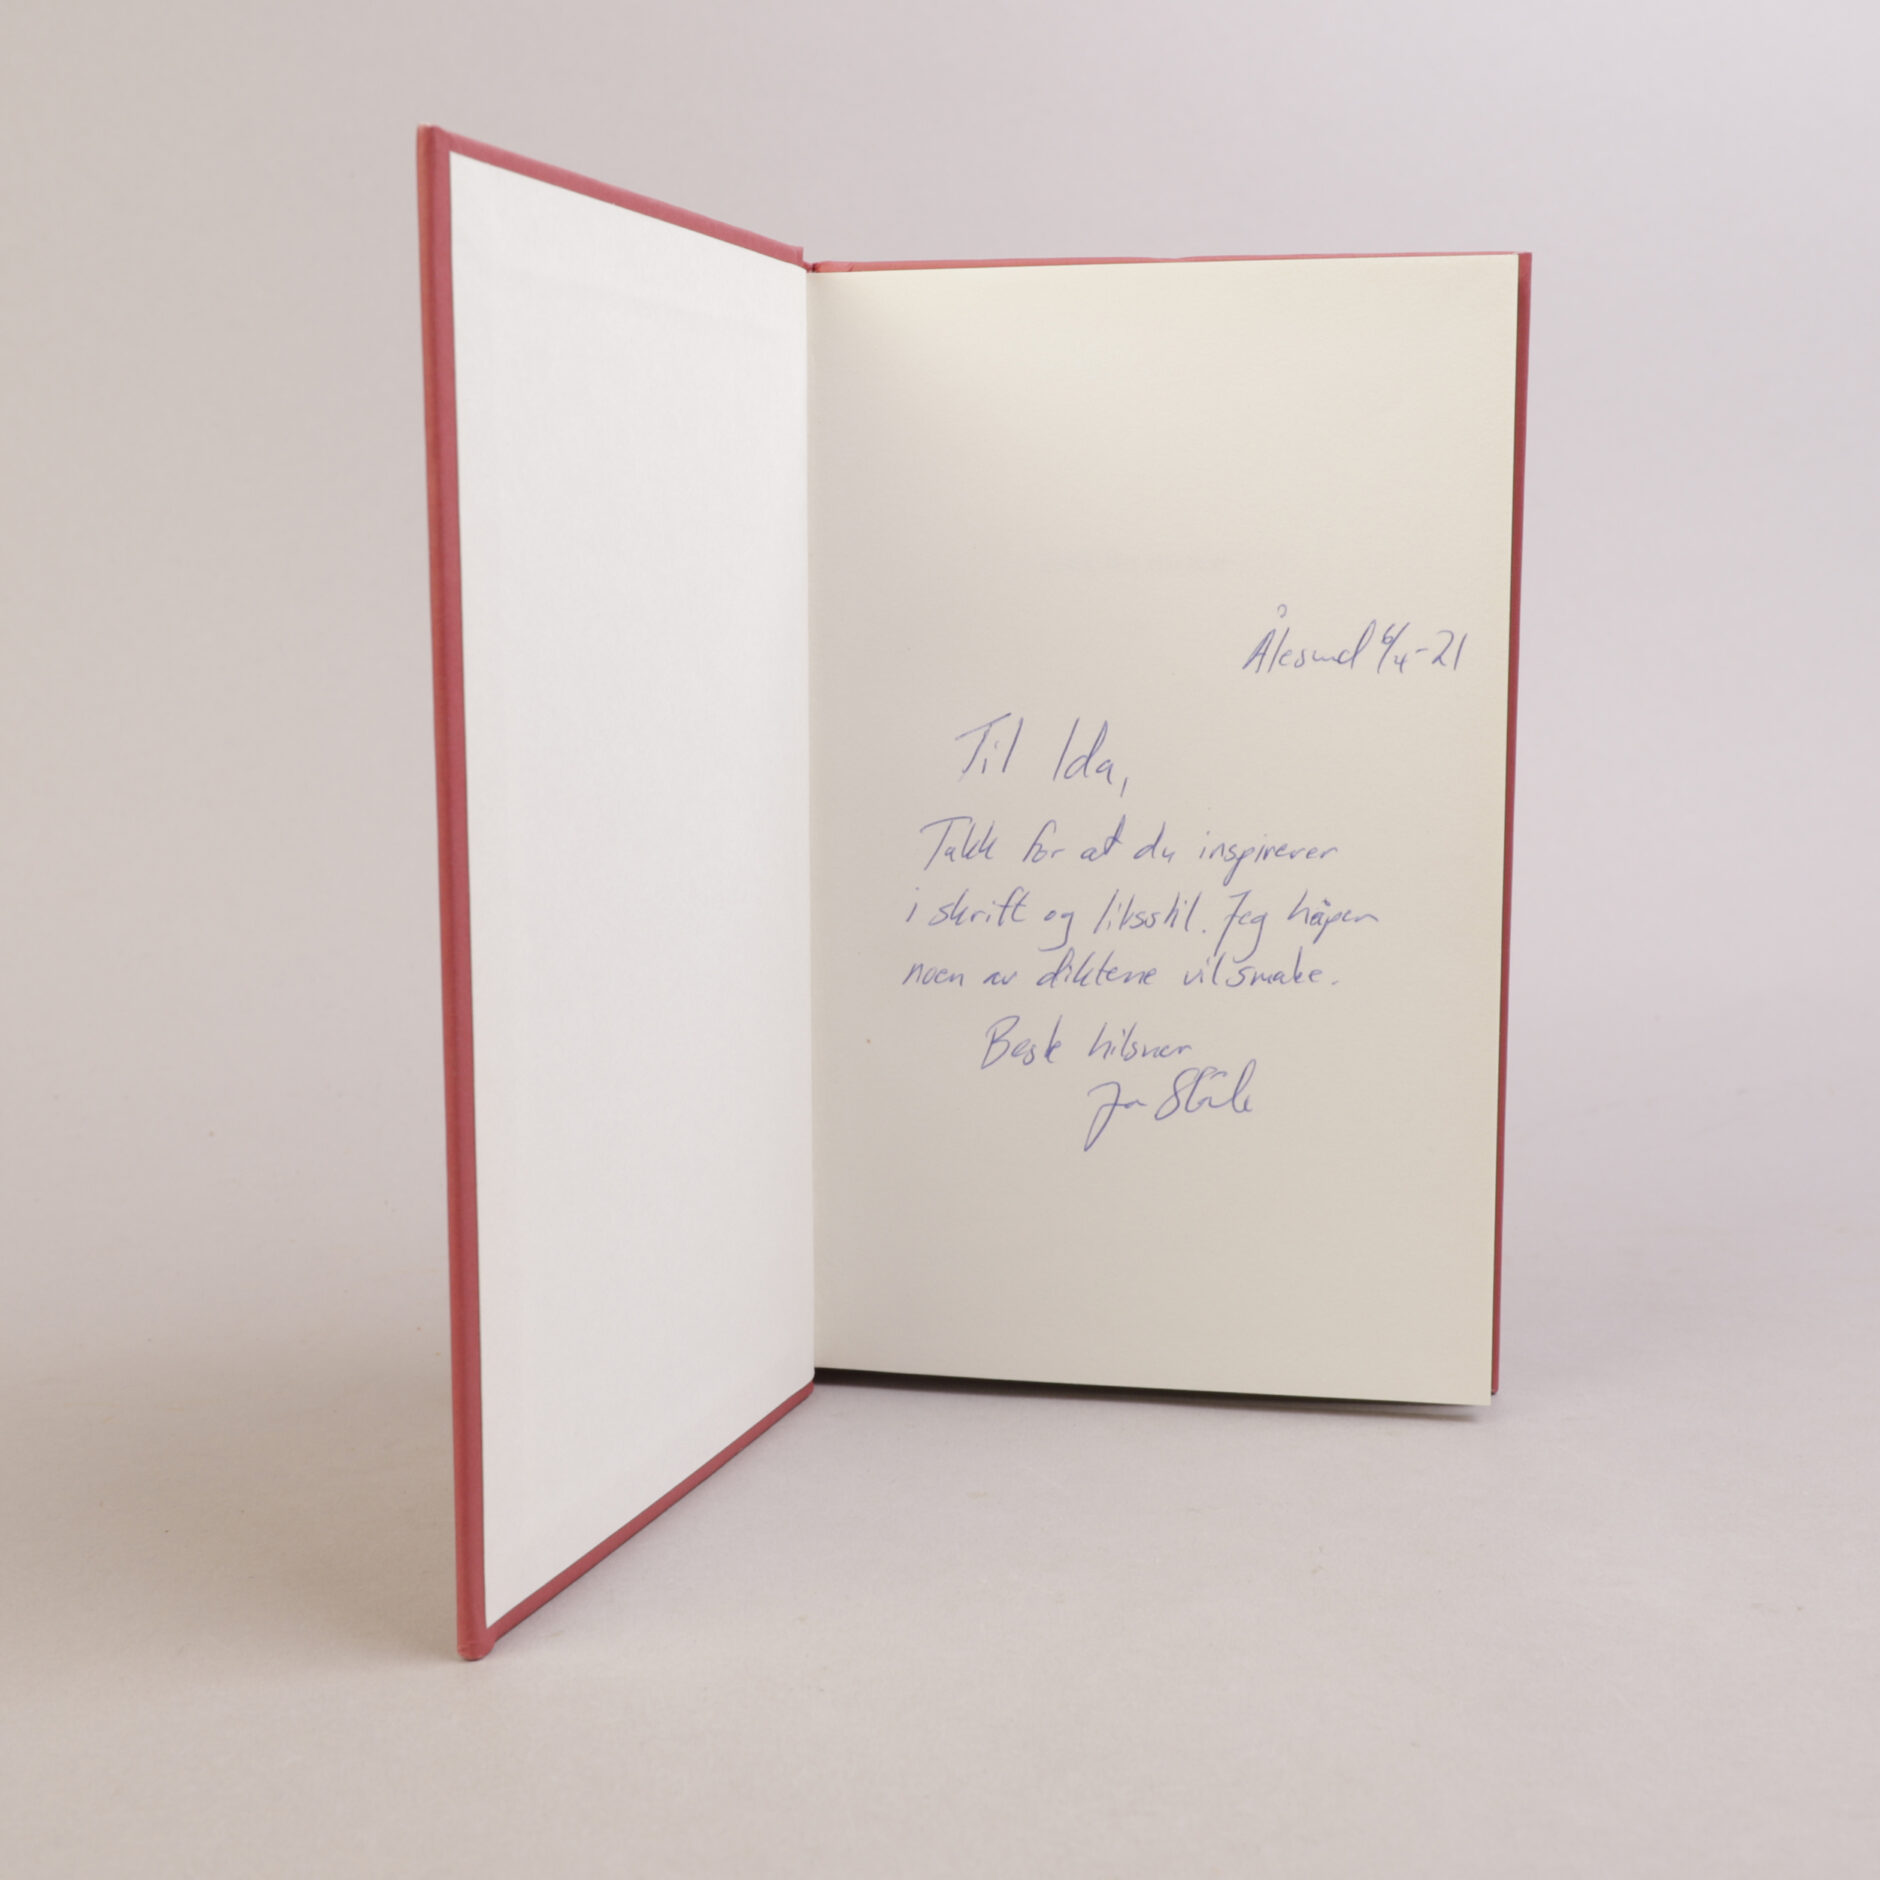 Ålesund 6/4-21
Til Ida,
Takk for at du inspirerer
i skrift og livsstil. Jeg håper
noen av diktene vil smake.
Beste hilsner
Jan Ståle